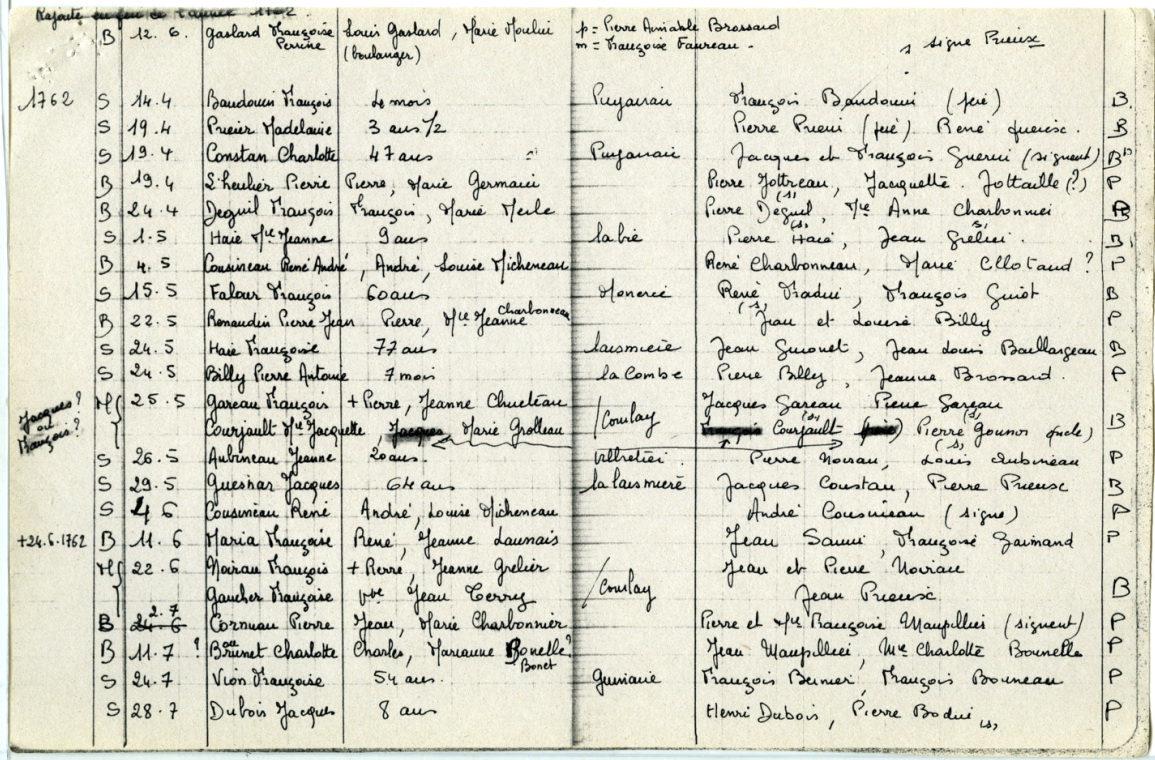 Rajouté en fin de l'année 1762
B 12.6. Gaslard Françoise Perrine Louis Gaslard, Marie Moulin (boulanger) p = Pierre Aimable Brossard m = Françoise Faureau. signe Prieux
1762 S 14.4 Baudouin François mois François Baudouin (père) B.
S 19.4 Madelaine 3 ans 1/2 Pierre (père) René B
S 19.4 Constan Charlotte 47 ans Jacques et François Guerin (signent) B
B 19.4 Lheulier Pierre Pierre, Marie Germain Pierre Jottreau, Jacquette Jottaille (?) P
B 24.4 Deguil François François, Marie Merle Pierre Deguil (s), Mie Anne Charbonnier B
S 1.5 Haie Mie Jeanne 9 ans la bie Pierre Haie (s), Jean Grelier (s). B
B 4.5 Cousineau René André, André, Louise Micheneau René Charbonneau, Marie Clotaud ? P
S 15.5 Falour François 60 ans Monerie René (s), François Guiot B
B 22.5 Renaudin Pierre Jean Pierre, Mie Jeanne Charbonneau Jean et Louise Billy P
S 24.5 Haie Françoise 77 ans Jean Guionet, Jean Louis Baillargeau B
S 24.5 Billy Pierre Antoine 7 mois la Combe Pierre Billy, Jeanne Brossard. P
Jacques? ou François? M 25.5 Gareau François + Pierre, Jeanne Chueteau / Coulay Jacques Gareau Pierre Gareau B
Courjault Mie Jacquette, Jacques Marie Grolleau François Courjault (s) (père) Pierre Gounor (s) (oncle)
S 26.5 Aubineau Jeanne 20 ans. Pierre Noirau, Louis (s) Aubineau P
S 29.5 Guesnar Jacques 64 ans Jacques Constan, Pierre Prieux B
S 4 6 Cousineau René André, Louise Micheneau André Cousineau (signe) P
+24.6.1762 B 11.6 Maria Françoise René, Jeanne Launais Jean Sauni, Françoise Guimand P
M 22.6 Noirau François + Pierre, Jeanne Grelier / Coulay Jean et Pierre Noriau B
Gaucher Françoise vve Jean Terry Jean Prieux
B 24.6 2.7 Cornuau Pierre Jean, Marie Charbonnier Pierre et Mie Françoise Maupillier (signent) P
B 11.7 ? Brunet ou Charlotte Charles, Marianne Bonelle? Bonet Jean Maupillier, Mie Charlotte Bounelle P
S 24.7 Vion Françoise 54 ans. François Bernier, François Bonneau P
S 28.7 Dubois Jacques 8 ans Henri Dubois, Pierre Bodin (s) P